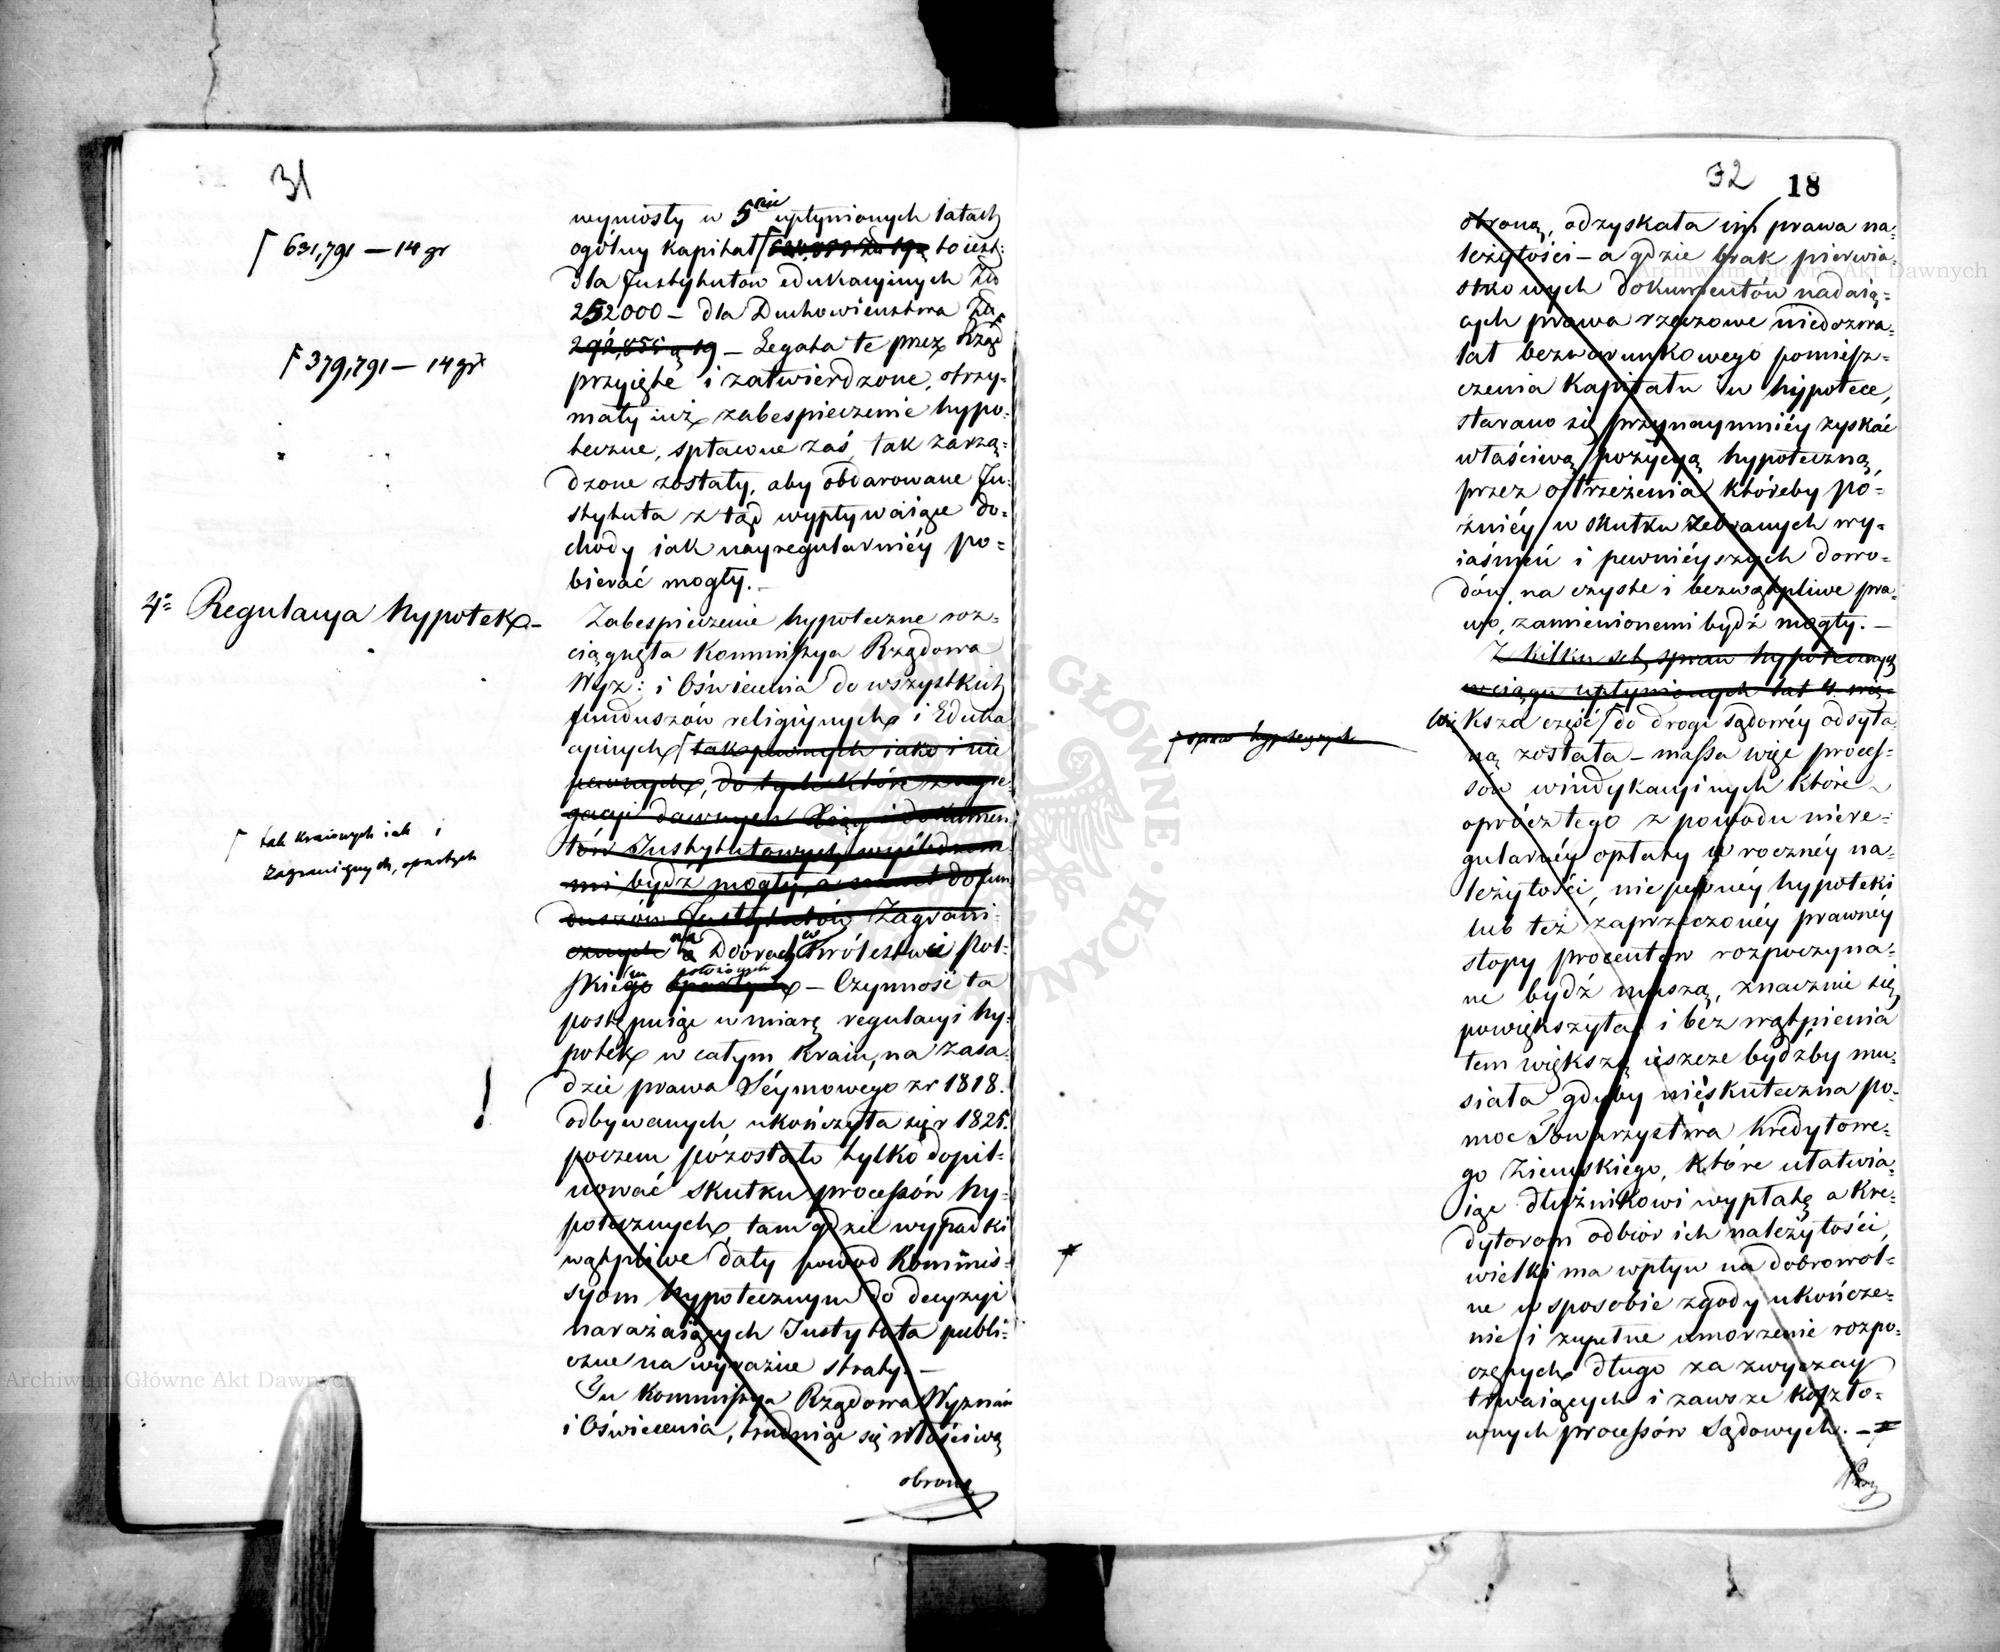 31
⌈ 631,791 — 14 gr
⌈ 379,791 — 14 gr
4º Regulacya hypotek. —
⌈ tak kraiowych iak i
Zagranicznych, opartych
wyniosły w 5ciu upłynionych latach
ogólny kapitał ⌈ to iest:
dla Instytutów edukacyinych Złł
252000 — dla Duchowieństwa Złł
— Legata te przez Rząd
przyięte i zatwierdzone, otrzy-
mały iuż zabespieczenie hypo-
teczne, spłacone zaś, tak zarzą-
dzone zostały, aby obdarowane In-
stytuta z tąd wypływaiące do-
chody iak nayregularniéy po-
bierać mogły. —
Zabespieczenie hypoteczne roz-
ciągnęła Kommissya Rządowa
Wyz: i Oświecenia do wszystkich
funduszów religiynych i Eduka
cyinych ⌈ tak pewnych iako i nie
pewnych, do tych które z segre-
gacyi dawnych Xiąg i dokumen
tów Instytutowych wyśledzone-
mi bydź mogły, a nawet do fun
duszów Instytutów Zagrani-
cznych na Dobrach w Królestwie Pol-
skiém położonych opartych — Czynność ta
postępuiąc w miarę regulacyi hy-
potek w całym Kraiu, na zasa-
dzie prawa Séymowego z r 1818.
odbywanych, ukończyła się r 1825.
poczem pozostało tylko dopil-
nować skutku processów hy-
potecznych, tam gdzie wypadki
wątpliwe dały powód Kommis-
syom hypotecznym do decyzyi
narażaiących Instytuta publi-
czne na wyraźne straty. —
Tu Kommissya Rządowa Wyznań
i Oświecenia, trudniąc się właściwą
obroną
32 18
obroną, odzyskała im prawa na-
leżytości — a gdzie brak pierwia-
stkowych dokumentów nadaią-
cych prawa rzeczowe niedozwa-
lał bezwarunkowego pomiesz-
czenia kapitału w hypotece,
starano się przynaymniéy zyskać
właściwą pozycyą hypoteczną,
przez ostrzeżenia któreby po-
źniéy w skutku zebranych wy-
iaśnień i pewniéyszych dowo-
dów, na czyste i bezwątpliwe pra-
wo, zamienionemi bydź mogły. —
Z kilku set spraw hypotecznych
w ciągu upłynionych lat 4. wię-
większa część ⌈ do drogi sądowéy odsyła
ną została — massa więc proces-
sów windykacyinych które
oprócz tego z powodu niere-
gularnéy opłaty w rocznéy na-
leżytości, niepewnéy hypoteki
lub też zaprzeczonéy prawnéy
stopy procentów rozpoczyna-
ne bydź muszą, znacznie się
powiększyła i bez wątpienia
tem większą ieszcze bydźby mu-
siała gdyby nie skuteczna po-
moc Towarzystwa Kredytowe-
go Ziemskiego, które ułatwia-
iąc dłużnikowi wypłatę a Kre-
dytorom odbiór ich należytości,
wielki ma wpływ na dobrowol-
ne w sposobie zgody ukończe-
nie i zupełne umorzenie rozpo-
czętych długo za zwyczay
trwaiących i zawsze koszto-
wnych processów Sądowych. —
⌈ spraw hypotecznych
Archiwum Główne Akt Dawnych
Archiwum Główne Akt Dawnych